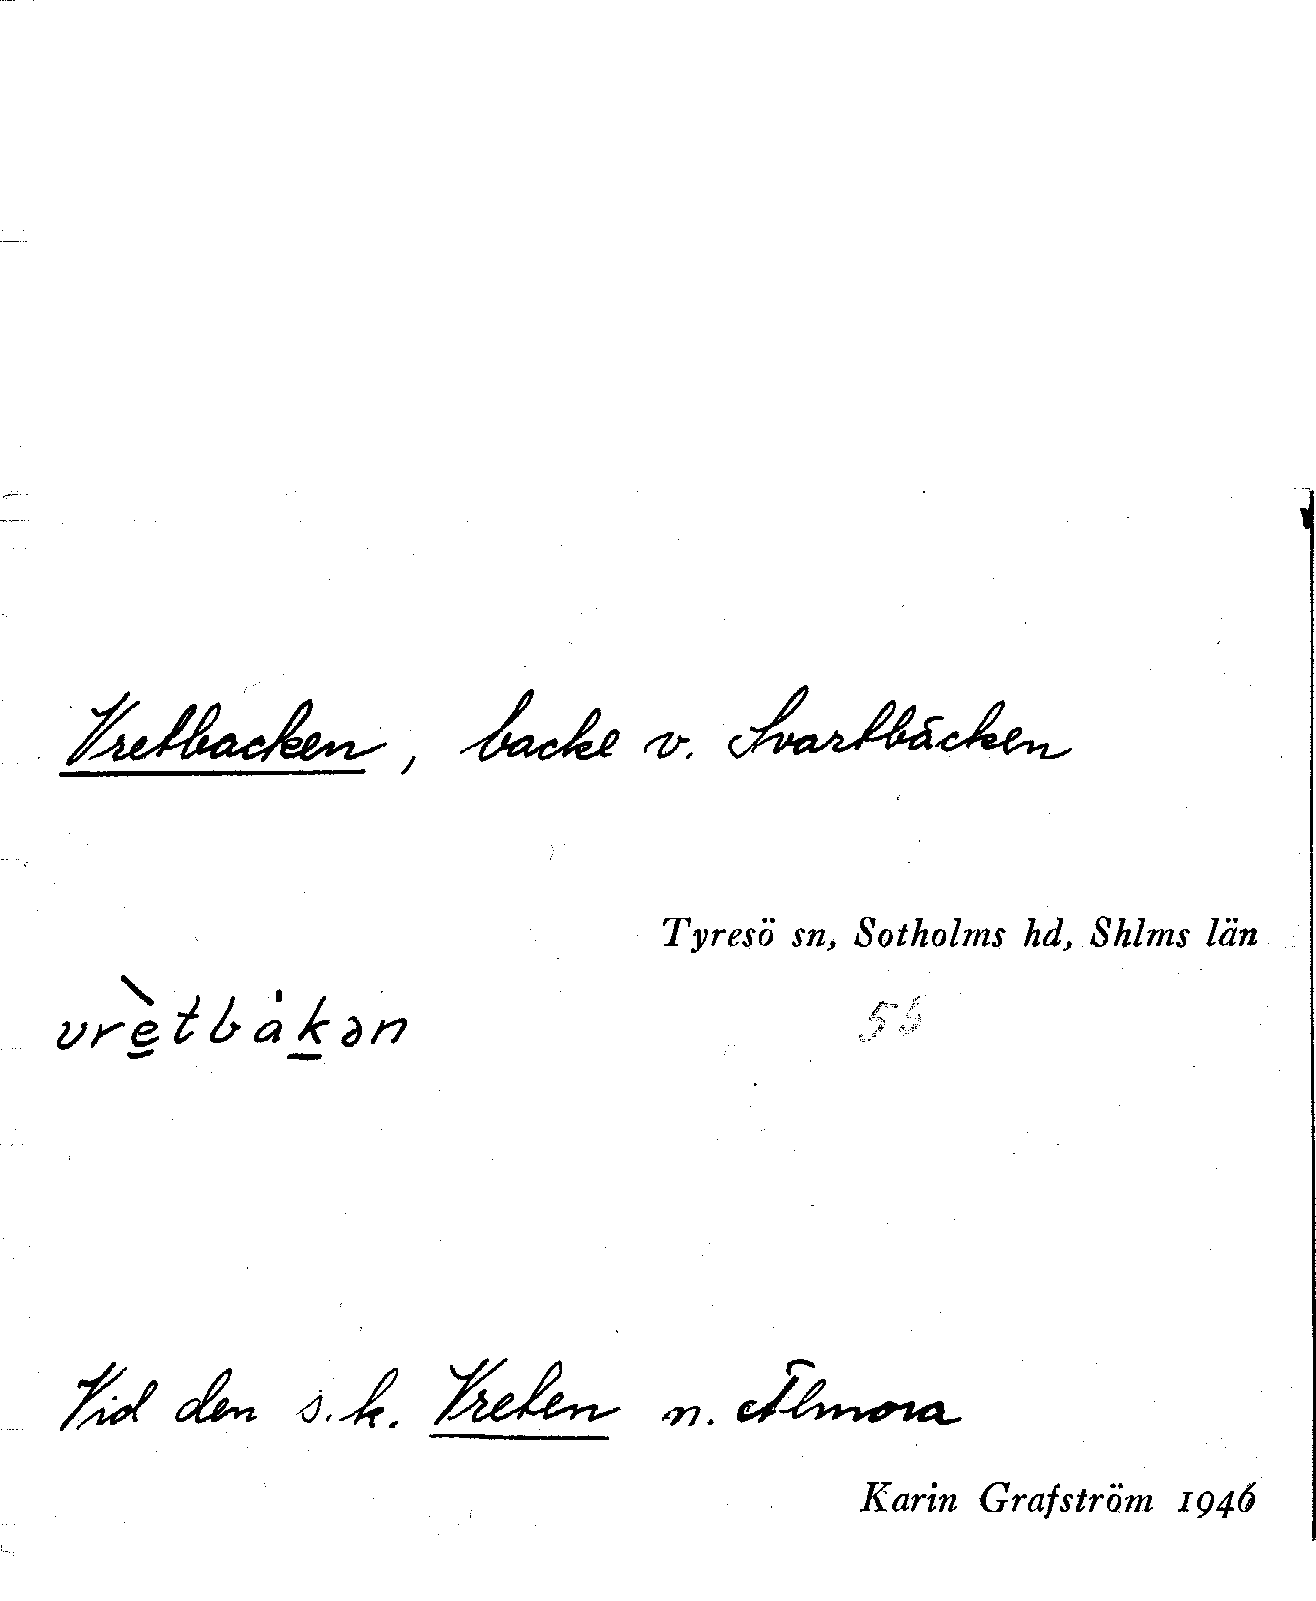 Vretbacken, backe v. Svartbäcken
Tyresö sn, Sotholms hd, Shlms län
vrè̱tbȧḵən
Vid den s.k. Vreten n. Älmora
Karin Grafström 1946